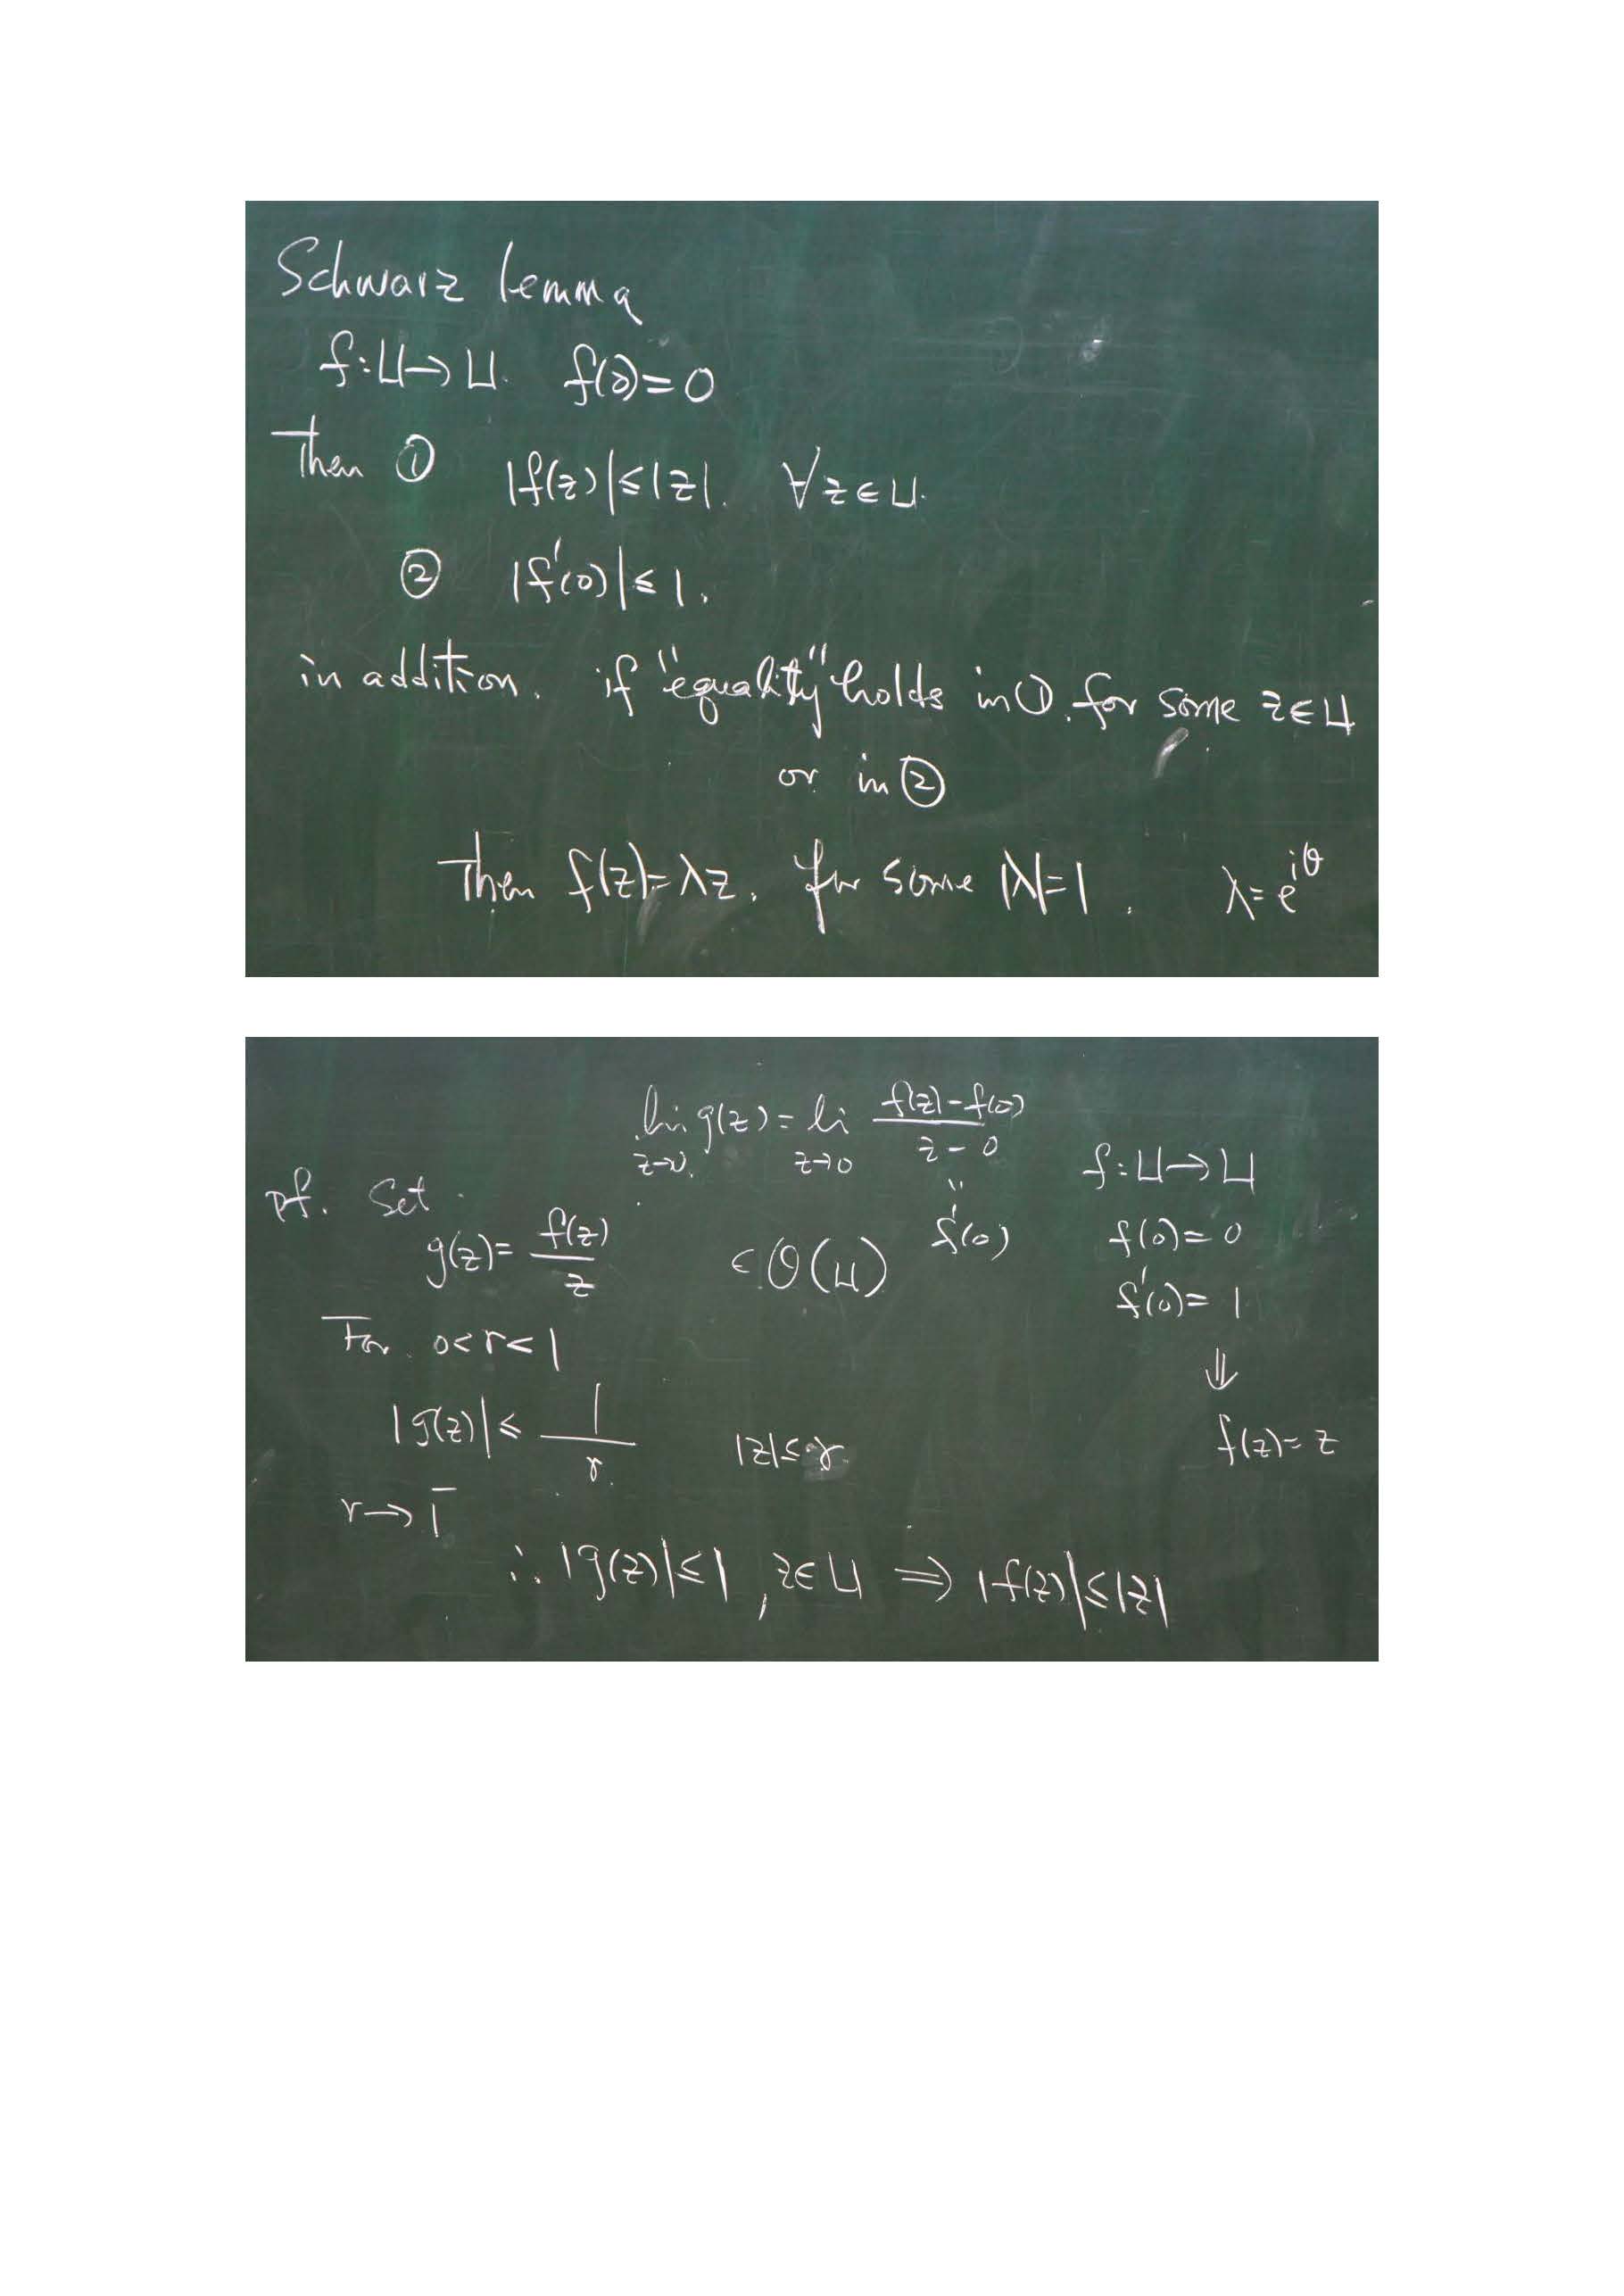 Schwarz lemma
f:U→U. f(0)=0
Then ① |f(z)|≤|z|. ∀z∈U.
② |f'(0)|≤1.
in addition. if "equality" holds in ①. for some z∈U
or in ②
Then f(z)=λz. for some |λ|=1. λ=e^{iθ}
lim_{z→0} g(z)= li_{z→0} \frac{f(z)-f(0)}{z-0}
" f'(0)
pf. Set g(z)= \frac{f(z)}{z} ∈ O(U)
For 0<r<1
|g(z)|≤ \frac{1}{r} |z|≤r
r→1^-
∴ |g(z)|≤1, z∈U ⇒ |f(z)|≤|z|
f:U→U
f(0)=0
f'(0)=1
⇓
f(z)=z